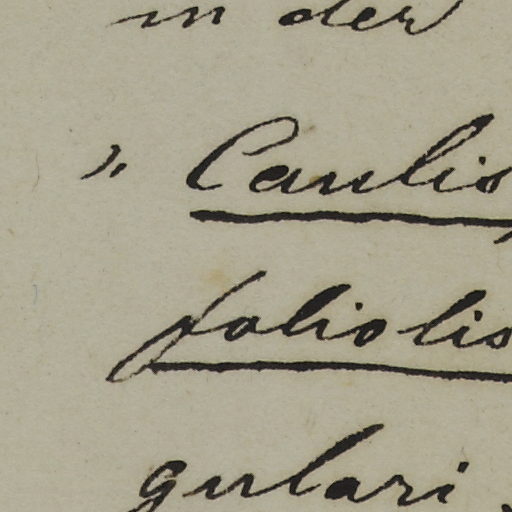 in der
", Caulis
foliolis
gulari